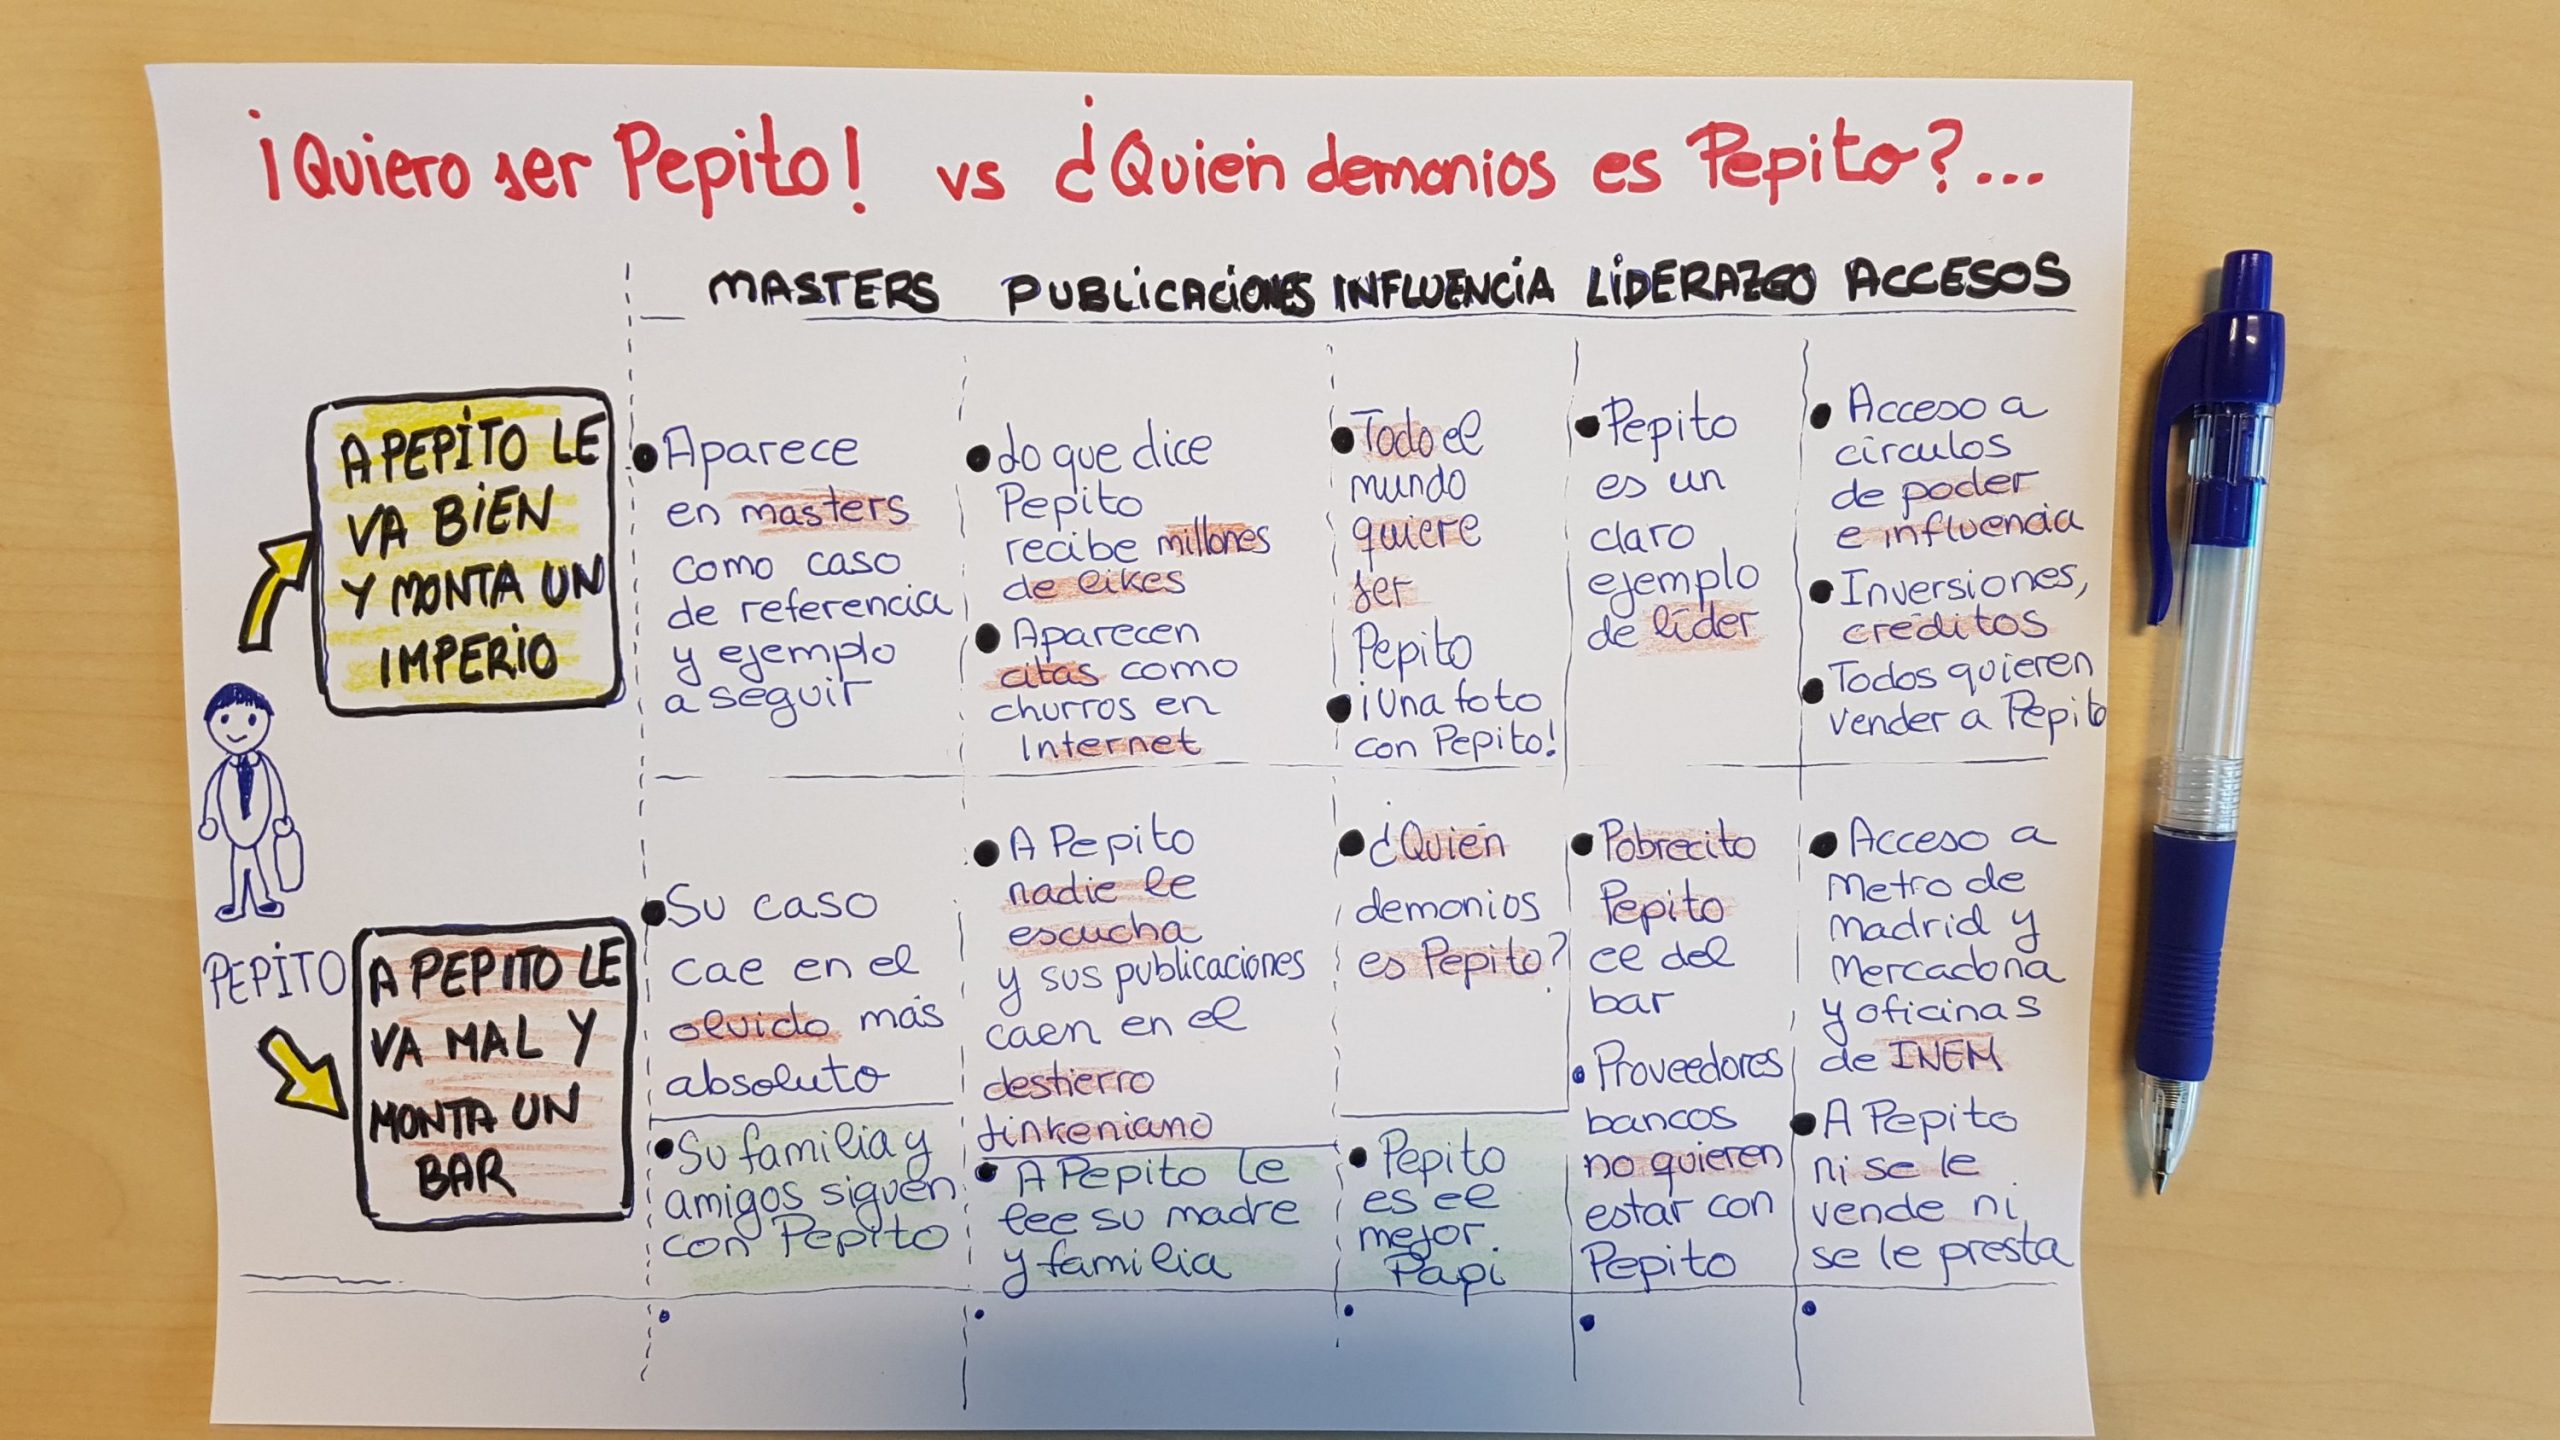 ¡Quiero ser Pepito! vs ¿Quién demonios es Pepito?...
MASTERS PUBLICACIONES INFLUENCIA LIDERAZGO ACCESOS
A PEPITO LE
VA BIEN
Y MONTA UN
IMPERIO
• Aparece
en masters
como caso
de referencia
y ejemplo
a seguir
• Lo que dice
Pepito
recibe millones
de likes
• Aparecen
citas como
churros en
Internet
• Todo el
mundo
quiere
ser
Pepito
• ¡Una foto
con Pepito!
• Pepito
es un
claro
ejemplo
de líder
• Acceso a
círculos
de poder
e influencia
• Inversiones,
créditos
• Todos quieren
vender a Pepito
PEPITO
A PEPITO LE
VA MAL Y
MONTA UN
BAR
• Su caso
cae en el
olvido más
absoluto
• Su familia y
amigos siguen
con Pepito
• A Pepito
nadie le
escucha
y sus publicaciones
caen en el
destierro
linkeniano
• A Pepito le
lee su madre
y familia
• ¿Quién
demonios
es Pepito?
• Pepito
es el
mejor.
Papi
• Pobrecito
Pepito
el del
bar
• Proveedores
bancos
no quieren
estar con
Pepito
• Acceso a
Metro de
Madrid y
Mercadona
y oficinas
de INEM
• A Pepito
ni se le
vende ni
se le presta